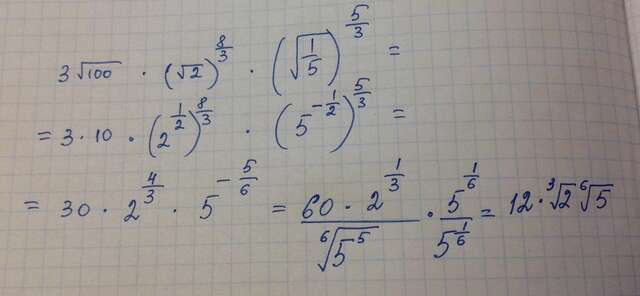 3√100 · (√2)^(8/3) · (√(1/5))^(5/3) =
= 3 · 10 · (2^(1/2))^(8/3) · (5^(-1/2))^(5/3) =
= 30 · 2^(4/3) · 5^(-5/6) = (60 · 2^(1/3))/(⁶√(5⁵)) · 5^(1/6)/5^(1/6) = 12 · ³√2 ⁶√5